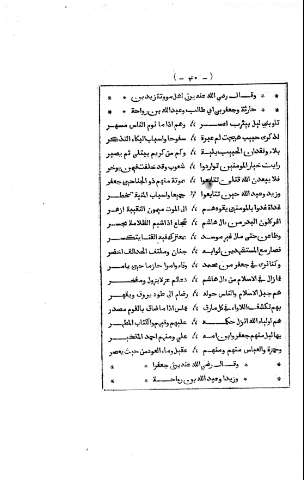 (- ٤٠ -)
* وقال رضي الله عنه يرثي أهل مؤتة زيد بن *
* حارثة وجعفر بن أبي طالب وعبدالله بن رواحة *
تأوبني ليل بيثرب أعسر * وهم إذا ما نوم الناس مسهر
لذكرى حبيب هيجت لي عبرة * سفوحا وأسباب البكاء التذكر
بلاء وفقدان الحبيب بلية * وكم من كريم يبتلى ثم يصبر
رأيت خيار المؤمنين تواردوا * شعوب وقد خلفت فيمن يؤخر
فلا يبعدن الله قتلى تتابعوا * بمؤتة منهم ذو الجناحين جعفر
وزيد وعبد الله حين تتابعوا * جميعا وأسباب المنية تخطر
غداة غدوا بالمؤمنين يقودهم * إلى الموت ميمون النقيبة أزهر
أغر كلون البدر من آل هاشم * شجاع إذا سيم الظلامة مجسر
فطاعن حتى مال غير موسد * بمعترك فيه القنا يتكسر
فصار مع المستشهدين ثوابه * جنان وملتف الحدائق أخضر
وكنا نرى في جعفر من محمد * وفاء وأمرا حازما حين يأمر
فما زال في الإسلام من آل هاشم * دعائم عز لا تزول ومفخر
هم جبل الإسلام والناس حوله * رضام إلى طود يروق ويقهر
بهم تكشف اللأواء في كل مأزق * عماس إذا ما ضاق بالقوم مصدر
هم أولياء الله أنزل حكمه * عليهم وفيهم والكتاب المطهر
بهاليل منهم جعفر وابن أمه * علي ومنهم أحمد المتخير
وحمزة والعباس منهم ومنهم * عقيل وماء العود من حيث يعصر
* وقال رضي الله عنه يرثي جعفرا *
* وزيدا وعبد الله بن رواحة *